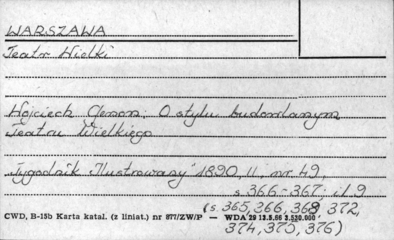 WARSZAWA
Teatr Wielki
Wojciech Gerson: O stylu budowlanym
Teatru Wielkiego
"Tygodnik Illustrowany" 1890, II, nr 49,
s. 366-367: il. 9
(s. 365, 366, 368, 372,
CWD, B-15b Karta katal. (z liniat.) nr 877/ZW/P — WDA 29 13.5.66 3.520.000
374, 375, 376)